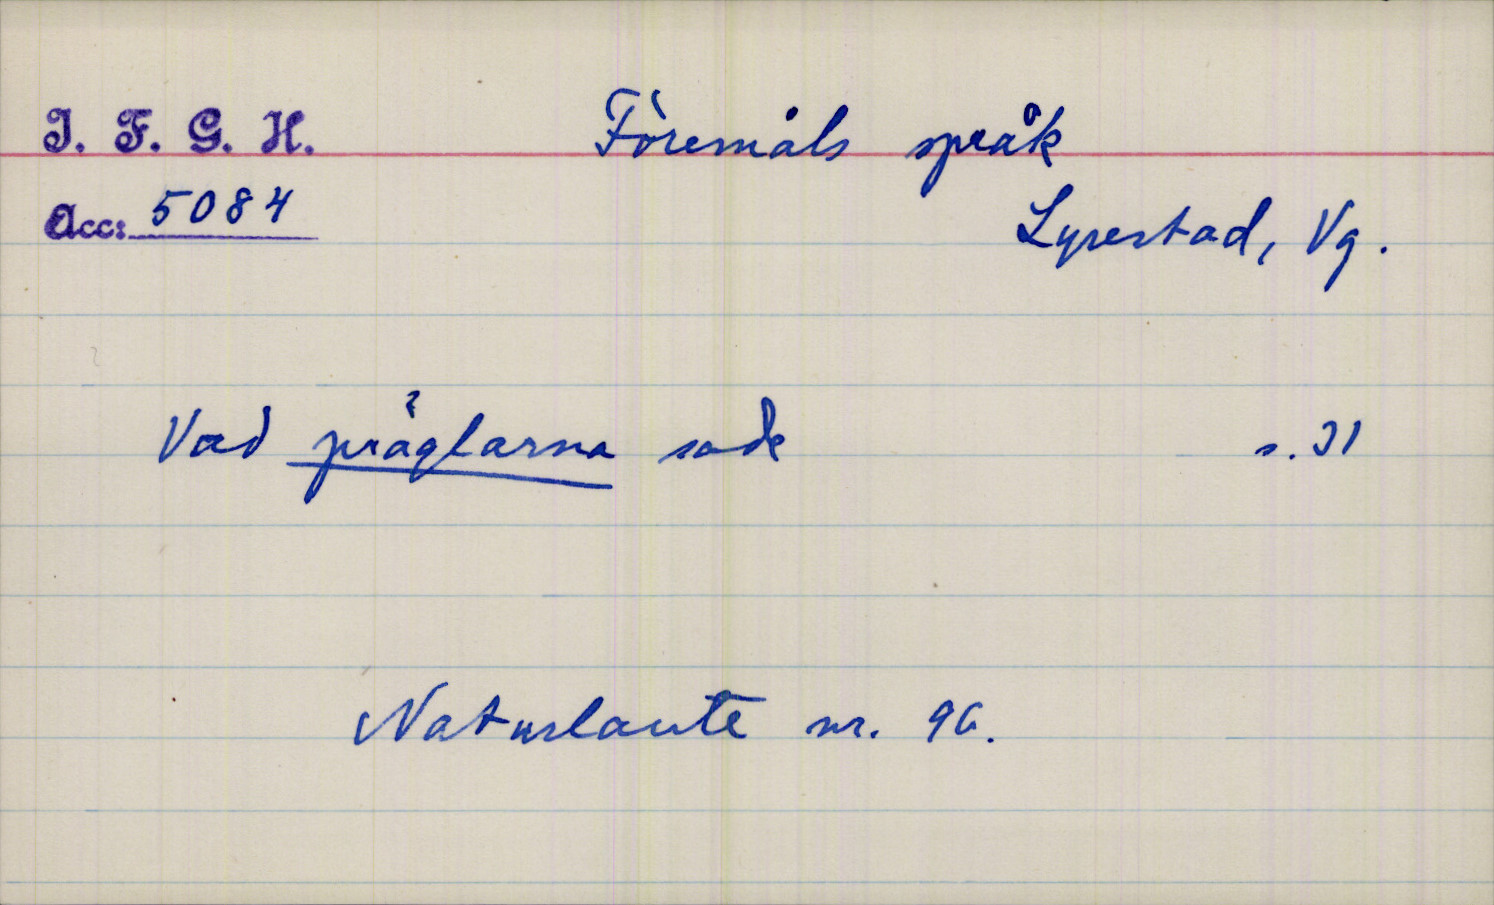 I. F. G. H.
Föremåls språk
Acc: 5084
Lyrestad, Vg.
Vad präglarna sade s. 31
Naturlaute nr. 96.